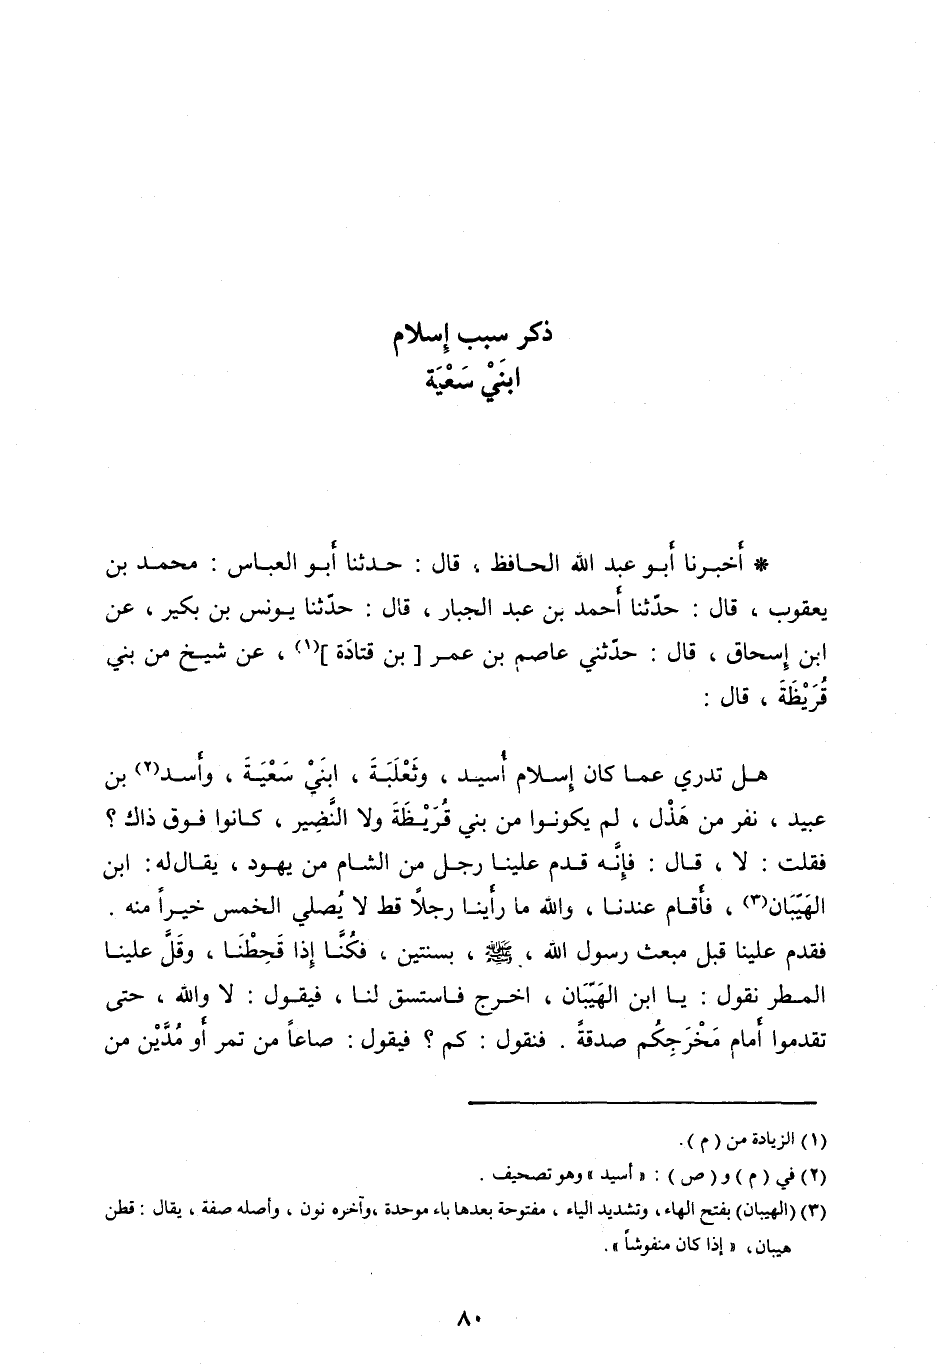 ذكر سبب إسلام
ابنَيْ سَعْيَة
* أخبرنا أبو عبد الله الحافظ ، قال : حدثنا أبو العباس : محمد بن
يعقوب ، قال : حدّثنا أحمد بن عبد الجبار ، قال : حدّثنا يونس بن بكير ، عن
ابن إسحاق ، قال : حدّثني عاصم بن عمر [ بن قتادَة ](١) ، عن شيخ من بني
قُرَيْظَةَ ، قال :
هل تدري عما كان إسلام أُسيد ، وثَعْلَبَةَ ، ابنَيْ سَعْيَةَ ، وأسد(٢) بن
عبيد ، نفر من هَذْل ، لم يكونوا من بني قُرَيْظَةَ ولا النَّضِير ، كانوا فوق ذاك ؟
فقلت : لا ، قال : فإنَّه قدم علينا رجل من الشام من يهود ، يقال له : ابن
الهَيّبَان(٣) ، فأقام عندنا ، والله ما رأينا رجلاً قط لا يُصلي الخمس خيراً منه .
فقدم علينا قبل مبعث رسول الله ، ﷺ ، بسنتين ، فكُنَّا إذا قَحِطْنَا ، وقَلَّ علينا
المطر نقول : يا ابن الهَيّبَان ، اخرج فاستسق لنا ، فيقول : لا والله ، حتى
تقدموا أمام مَخْرَجِكُم صدقةً . فنقول : كم ؟ فيقول : صاعاً من تمر أو مُدَّيْن من
(١) الزيادة من ( م ) .
(٢) في ( م ) و ( ص ) : « أسيد » وهو تصحيف .
(٣) (الهيبان) بفتح الهاء ، وتشديد الياء ، مفتوحة بعدها باء موحدة ،وآخره نون ، وأصله صفة ، يقال : قطن
هيبان ، « إذا كان منفوشاً » .
٨٠